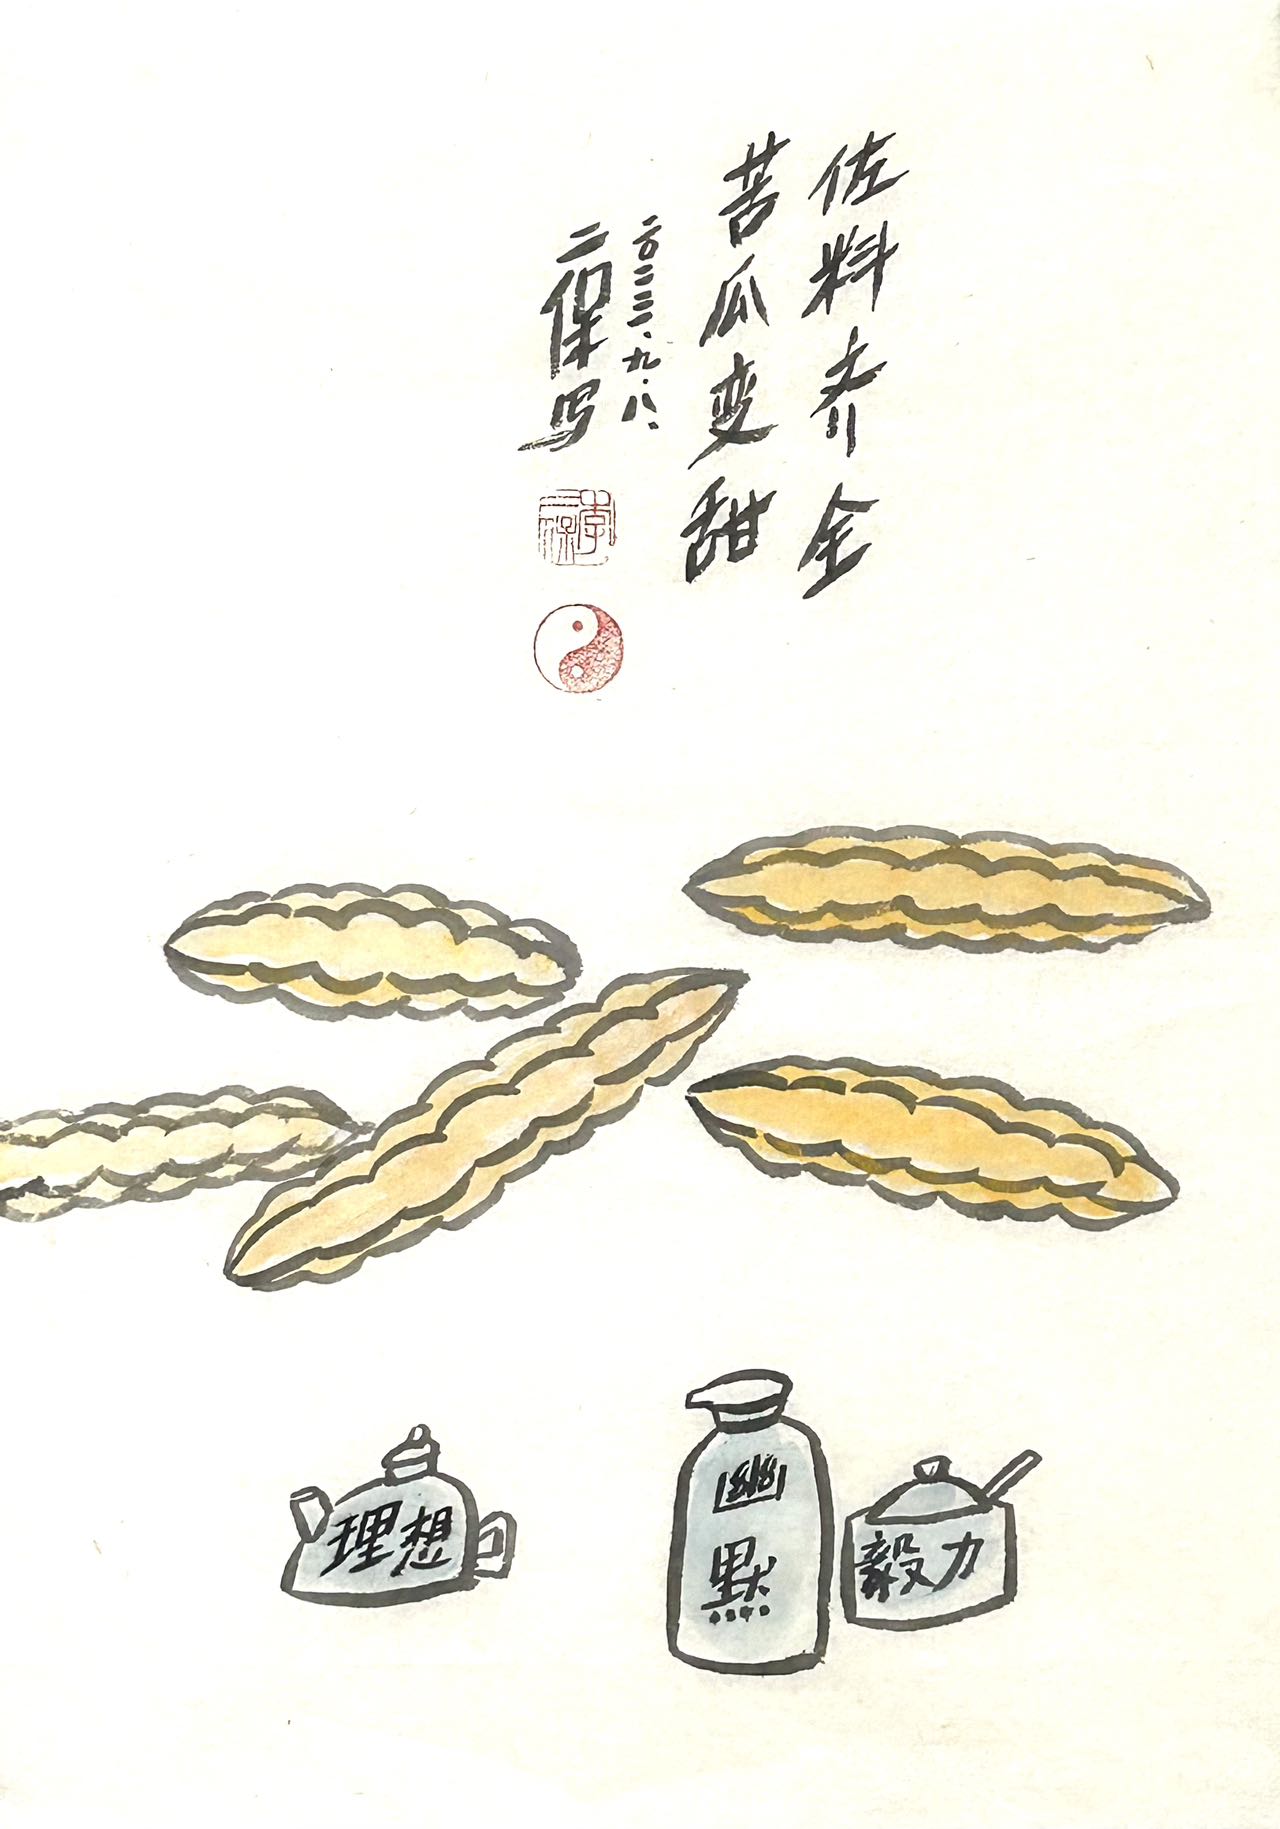 佐料齐全
苦瓜变甜
二〇二三、九、八、
二保写
李二保
理想
幽默
毅力